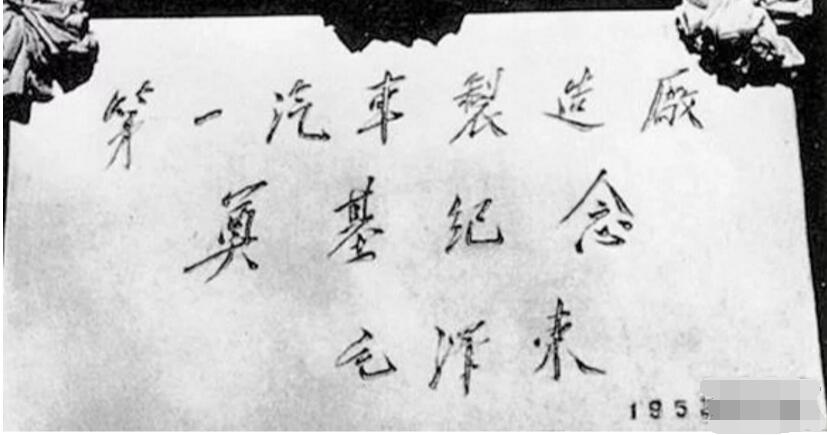 第一汽車製造廠
奠基纪念
毛泽东
195